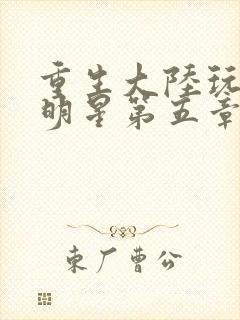 重生大陸玩
明星第五章
東厂曹公